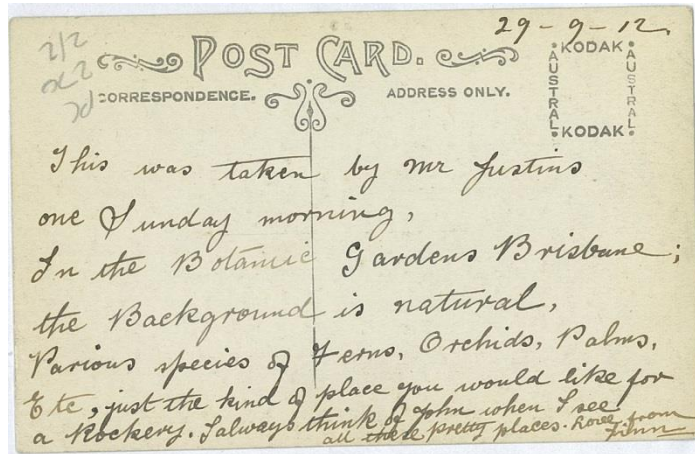 29-9-12
2/2
POST CARD.
CORRESPONDENCE.
ADDRESS ONLY.
KODAK
AUSTRAL
AUSTRAL
KODAK
This was taken by Mr Justins
one Sunday morning,
In the Botanic Gardens Brisbane;
the Background is natural,
Various species of Ferns, Orchids, Palms,
Etc, just the kind of place you would like for
a Rockery. I always think of John when I see
all these pretty places. Love from